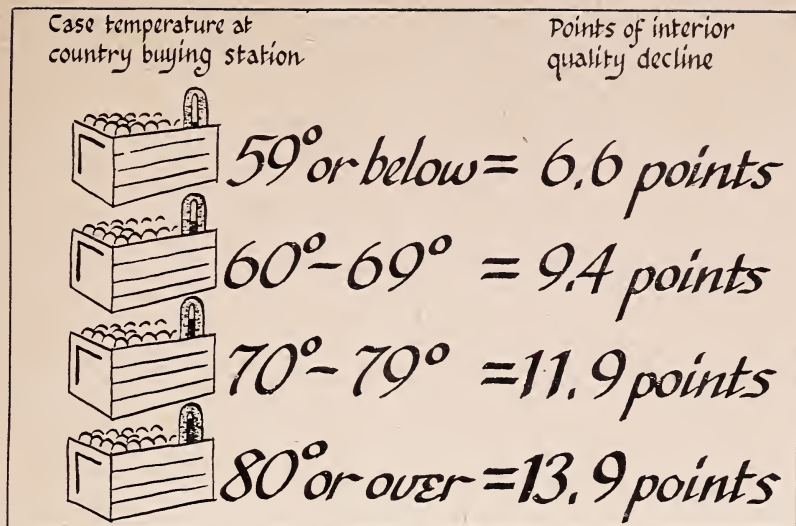 Case temperature at
country buying station
Points of interior
quality decline
59° or below = 6.6 points
60°-69° = 9.4 points
70°-79° = 11.9 points
80° or over = 13.9 points